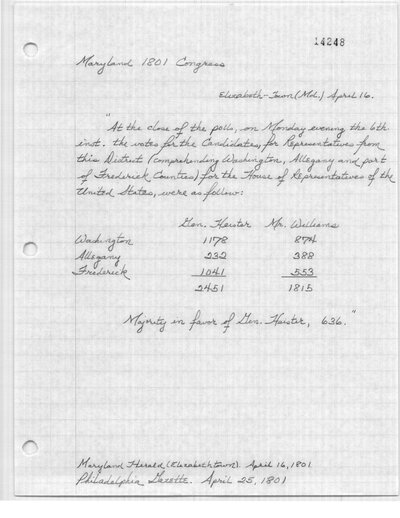 14248
Maryland 1801 Congress
Elizabeth-Town (Md.) April 16.
"At the close of the polls, on Monday evening the 6th
inst. the votes for the Candidates, for Representatives from
this District (comprehending Washington, Allegany and part
of Frederick Counties) for the House of Representatives of the
United States, were as follow:
Gen. Heister Mr. Williams
Washington 1178 874
Allegany 232 388
Frederick 1041 553
2451 1815
Majority in favor of Gen. Heister, 636."
Maryland Herald (Elizabethtown). April 16, 1801
Philadelphia Gazette. April 25, 1801